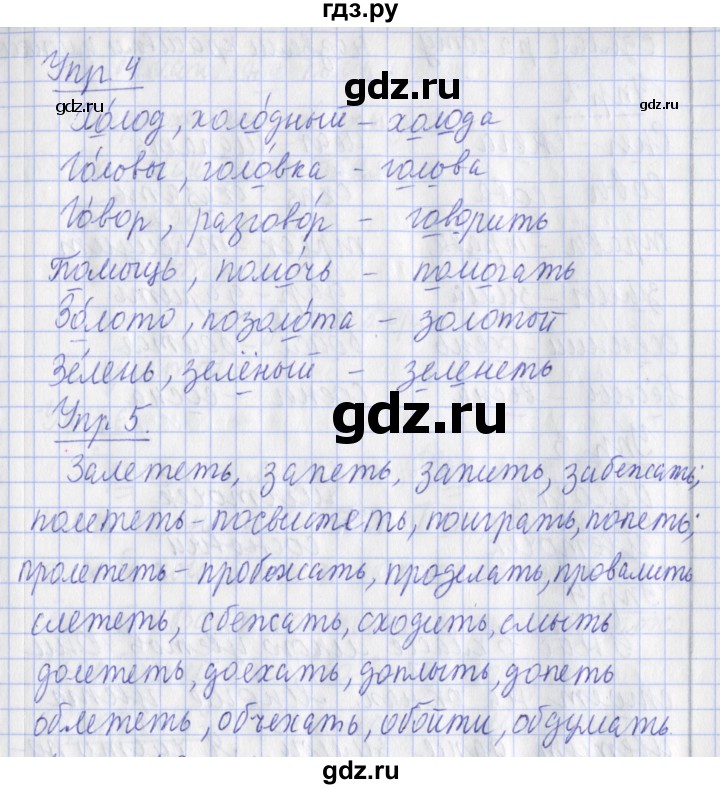 гдз.ру
Упр 4
gdz.ru
gdz.ru
gdz.ru
Хо́лод, холо́дный – холода
Го́ловы, голо́вка – голова
Го́вор, разгово́р – говорить
По́мыщь, помо́чь – помогать
Зо́лото, позоло́та – золотой
Зе́лень, зелёный – зеленеть
gdz.ru
Упр 5.
Залететь, запеть, запить, забежать;
полететь – посвистеть, поиграть, попеть;
пролететь – пробежать, проделать, провалить
слететь, сбежать, сходить, смыть
gdz.ru
gdz.ru
долететь, доехать, доплыть, допеть
облететь, объехать, обойти, обдумать.
gdz.ru